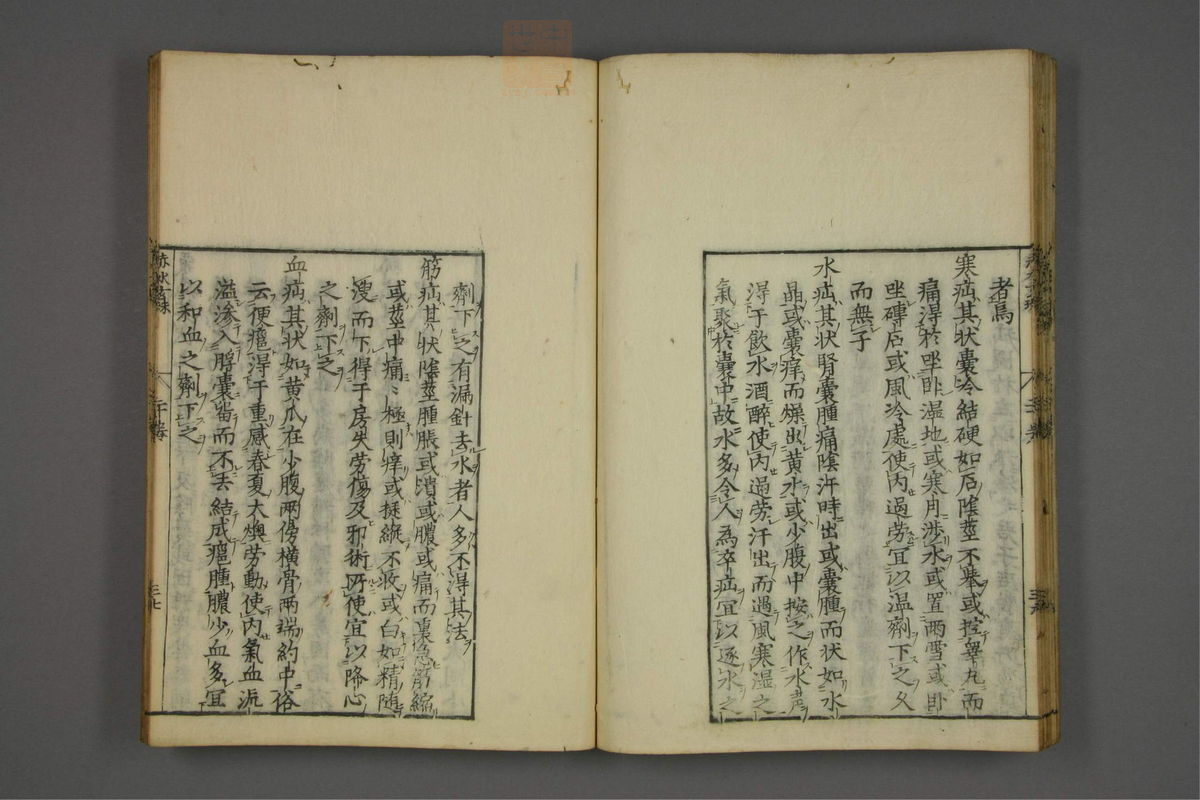 者焉
寒疝其状囊冷結硬如石陰莖不擧或控睾丸而
痛得於坐卧湿地或寒月渉水或置雨雪或卧
坐磚石或風冷處使内過劳宜以温劑下之久
而無子
水疝其状腎囊腫痛陰汗時出或囊腫而状如水
晶或囊痒而燥出黄水或少腹中按之作水声
得于飲水酒醉使内過劳汗出而遇風寒湿之
氣聚於囊中故水多令人為卒疝宜以逐水之
劑下之有漏針去水者人多不得其法
筋疝其状陰莖腫脹或潰或膿或痛而裏急筋縮
或莖中痛〻極則痒或挺縱不收或白如精随
溲而下得于房失劳傷及邪術所使宜以降心
之劑下之
血疝其状如黄瓜在少腹両傍横骨両端約中俗
云便癰得于重感春夏大燠劳動使内氣血流
溢滲入脬囊畄而不去結成癰腫膿少血多宜
以和血之劑下之